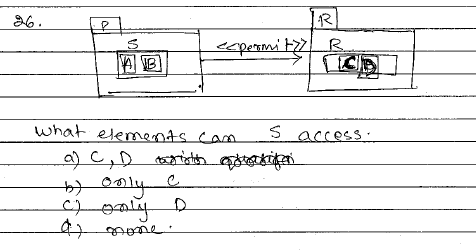 26.
P
R
S
<<permit>>
R
A B
C D
What elements can S access.
a) C, D
b) only C
c) only D
d) none.